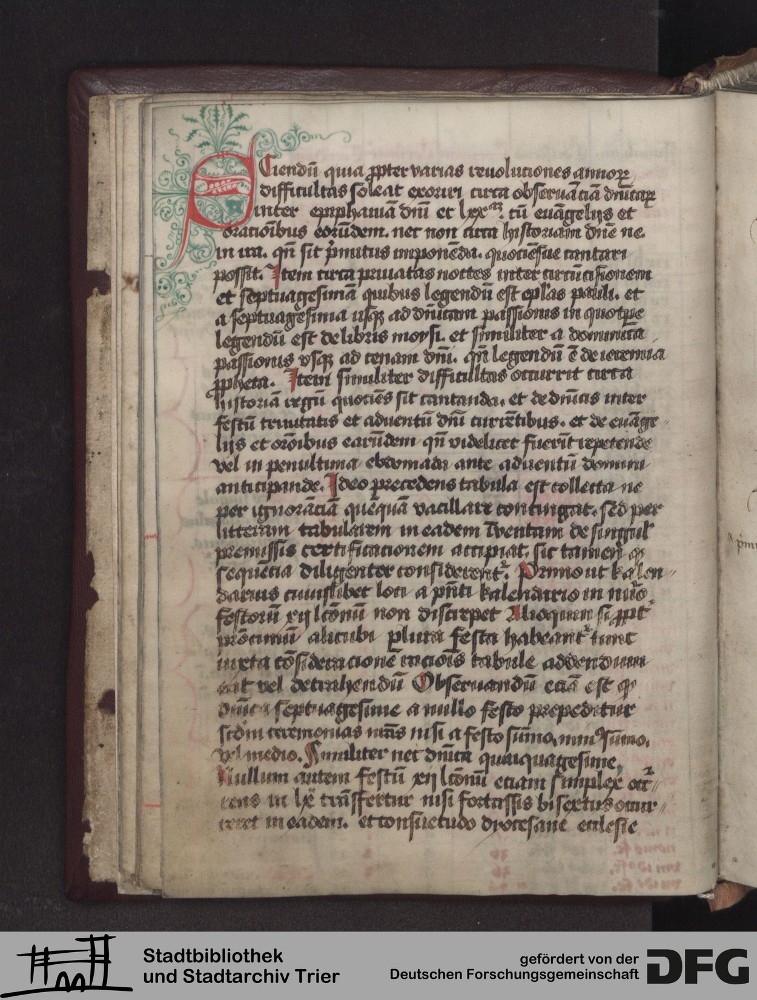 SCiendū quia ꝓpter varias reuoluciones annoꝝ
difficultas soleat exoriri circa obseruāciā dn̄icaꝝ
inter epiphaniā dn̄i et lxx. cū euāgelijs et
oracioībus eorūdem. nec non circa hystoriam dn̄e ne
in ira. qn̄ sit p̄mitus imponēda. quociēsue cantari
possit. Item circa priuatas noctes inter circūcisionem
et septuagesimā quibus legendū est ep̄las pauli. et
a septuagesima usqꝫ ad dn̄icam passionis in
legendū est de libris moysi. et similiter a dominica
passionis vsqꝫ ad cenam dn̄i. qn̄ legendū ē de ieremia
ꝓpheta. Item similiter difficultas occurrit circa
historiā regū quociēs sit cantanda. et de dn̄icis inter
festū trinitatis et aduentū dn̄i currētibus. et de euāge-
lijs et orōnibus earūdem qn̄ videlicet fuerīt repetende
vel in penultima ebdomada ante aduentū domini
anticipande. Ideo precedens tabula est collecta ne
per ignorāciā quēquā vacillare contingat. sed per
litteram tabularem in eadem Inuentam de singul̕
premissis certificacionem accipiat. sic tamen ꝙ
sequēcia diligenter considerent᷑. Primo ut kalen-
darius cuiuslibet loci a p̄nti kalendario in nūo
festorū xij lcōnū non discrepet Alioquin si ꝓpt̕
alicubi plura festa habeant᷑ tunc
iuxta cōsideracionē racōis tabule addendum
erit vel detrahendū Obseruandū eciā est ꝙ
dn̄ica septuagesime a nullo festo prepeditur
scdm ceremonias nr̄as nisi a festo sūmo, min᷒ sūmo,
vel medio. Similiter nec dn̄ica quīquagesime,
Nullum autem festū xij lcōnū eciam simplex occ̕-
rens in lxͣ trāsffertur nisi fortassis bisextus occur-
reret in eadem. et consuetudo dyocesane ecclesie
Stadtbibliothek
und Stadtarchiv Trier
gefördert von der
Deutschen Forschungsgemeinschaft
DFG